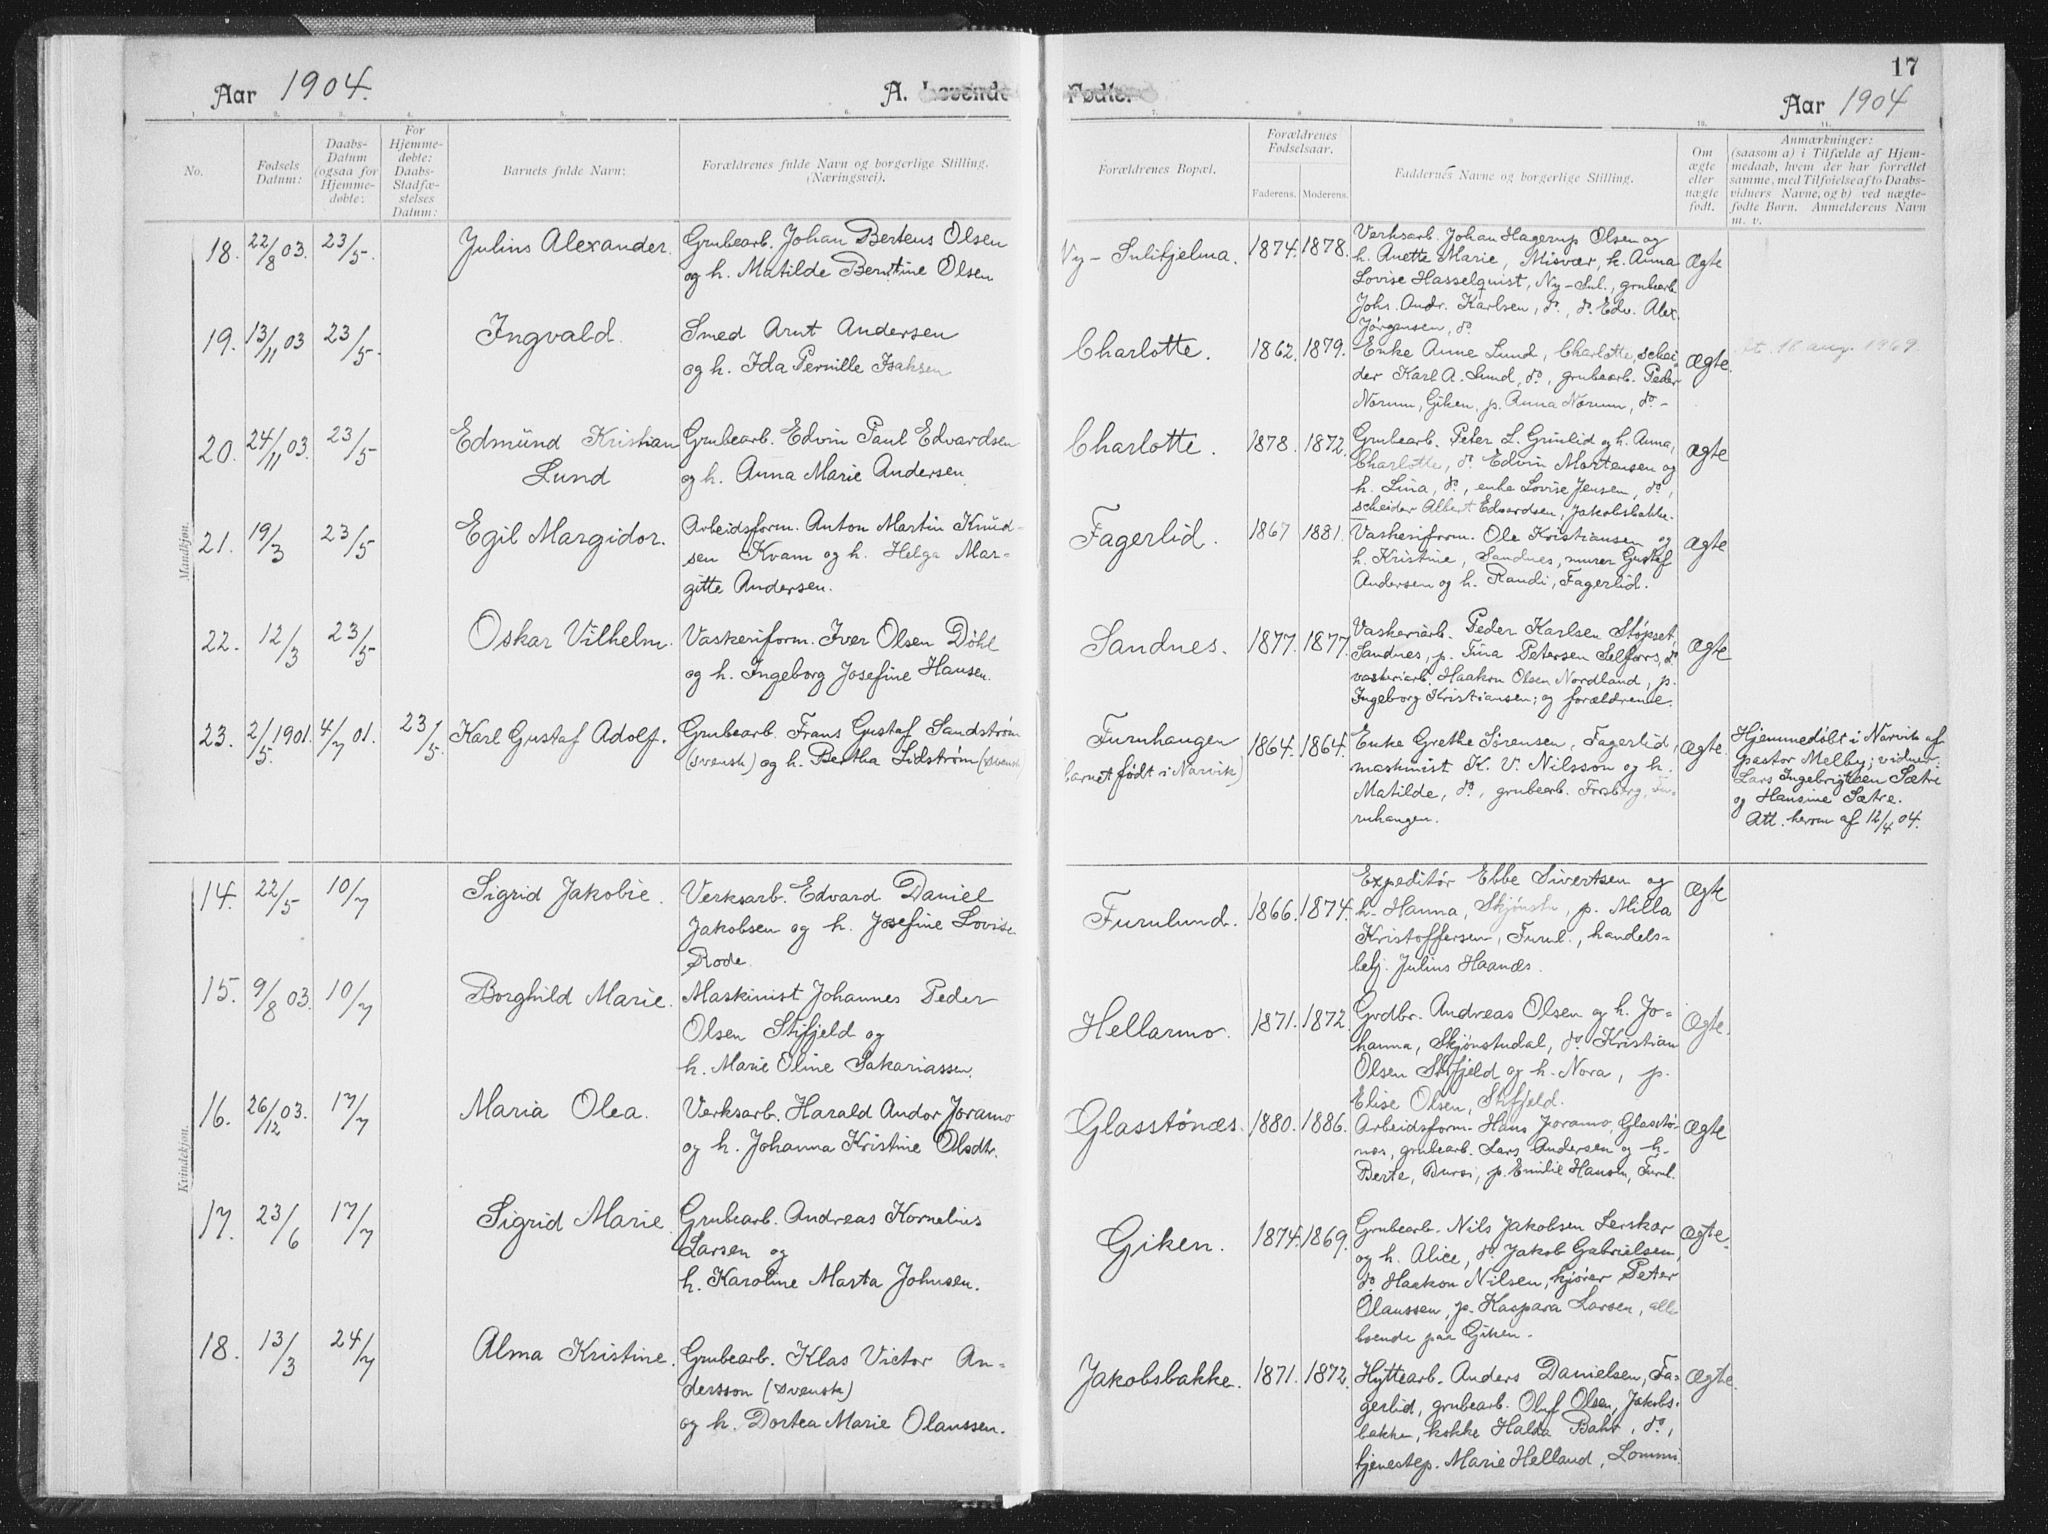 Aar 1904. A. Levende
1. 2. 3. 4. 5. 6.
No. Fødsels Datum: Daabs-Datum (ogsaa for Hjemmedøbte: For Hjemmedøbte: Daabs-Stadfæstelses Datum: Barnets fulde Navn: Forældrenes fulde Navn og borgerlige Stilling. (Næringsvei).
Mandkjøn.
18. 22/8 03. 23/5. Julius Alexander. Grubearb. Johan Berteus Olsen
og h. Matilde Berntine Olsen
19. 13/11 03 23/5. Ingvald. Smed Arnt Andersen
og h. Ida Pernille Isaksen
20. 24/11 03. 23/5 Edmund Kristian Grubearb. Edvin Paul Edvardsen
Lund og h. Anna Marie Andersen.
21. 19/3 23/5 Egil Margidor. Arbeidsform. Anton Martin Knud-
sen Kvam og h. Helga Mar-
gitte Andersen.
22. 12/3 23/5 Oskar Vilhelm. Vaskeriform. Iver Olsen Döhl
og h. Ingeborg Josefine Hansen.
23. 2/5 1901. 4/7 01. 23/5. Karl Gustaf Adolf. Grubearb. Frans Gustaf Sandstrøm
(svensk) og h. Bertha Lidstrøm (svensk)
Kvindekjøn.
14. 22/5 10/7 Sigrid Jakobie. Verksarb. Edvard Daniel
Jakobsen og h. Josefine Lovise
Rode.
15. 9/8 03. 10/7 Borghild Marie. Maskinist Johannes Peder
Olsen Stifjeld og
h. Marie Oline Sakariassen.
16. 26/12 03. 17/7 Maria Olea. Verksarb. Harald Andor Joramo
og h. Johanna Kristine Olsdtr.
17. 23/6 17/7 Sigrid Marie Grubearb. Andreas Kornelius
Larsen og
h. Karoline Marta Johnsen.
18. 13/3 24/7 Alma Kristine. Grubearb. Klas Victor An-
dersson (svensk)
og h. Dortea Marie Olaussen.
17
Fødte. Aar 1904
7. 8. 9. 10. 11.
Forældrenes Bopæl. Forældrenes Fødselsaar. Faderens. Moderens. Faddernes Navne og borgerlige Stilling. Om ægte eller uægte født. Anmærkninger: (saasom a) i Tilfælde af Hjemmedaab, hvem der har forrettet samme, med Tilføielse af to Daabsvidners Navne, og b) ved uægtefødte Børn. Anmelderens Navn m. v.
Ny-Sulitjelma. 1874. 1878. Verksarb. Johan Hagerup Olsen og
h. Anette Marie, Misvær, h. Anna Ægte
Lovise Hasselquist, Ny-Sul., grubearb.
Johs. Andr. Karlsen, do, do. Edv. Alex.
Jørgensen, do
Charlotte. 1862. 1879. Enke Anne Lund, Charlotte, schei- Ægte. 18 aug. 1969.
der Karl A. Lund, do, grubearb. Peder
Norum, Giken, p. Anna Norum, do-
Charlotte. 1878. 1872. Grubearb. Peter L. Grinlid og h. Anna, Ægte
Charlotte, do. Edvin Mortensen og
h. Lina, do, enke Lovise Jensen, do,
scheider Albert Edvardsen, Jakobsbakke.
Fagerlid. 1867 1881. Vaskeriform. Ole Kristiansen og Ægte
h. Kristine, Sandnes, murer Gustaf
Andersen og h. Randi, Fagerlid.
Sandnes. 1877. 1877. Vaskeriarb. Peder Karlsen Støpset Ægte
Sandnes, p. Tina Petersen Selfors, do
vaskeriarb. Haakon Olsen Nordland, p.
Ingeborg Kristiansen; og forældrene.
Furuhaugen 1864. 1864. Enke Grethe Sørensen, Fagerlid, Ægte. Hjemmedøbt i Narvik af
(barnet født i Narvik) maskinist K. V. Nilsson og h. pastor Melby; vidner:
Matilde, do, grubearb. Froberg, Fu- Lars Ingebrigtsen Sætre
ruhaugen. og Hansine Sætre.
Att. herom af 12/4 04.
Furulund. 1866. 1874. Expeditør Ebbe Sivertsen og Ægte
h. Hanna, Skjønstu, p. Milla
Kristoffersen, Furul., handels-
betj. Julius Haanes.
Hellarmo. 1871. 1872. Grdbr. Andreas Olsen og h. Jo- Ægte.
hanna, Skjønstudal, do. Kristian
Olsen Stifjeld og h. Nora, p.
Elise Olsen, Stifjeld.
Glasstönæs. 1880. 1886. Arbeidsform. Hans Joramo, Glasstø- Ægte
nes, grubearb. Lars Andersen og h.
Berte, Bursi, p. Emilie Hansen, Furul.
Giken. 1874. 1869. Grubearb. Nils Jakobsen Lerskar Ægte.
og h. Alice, do. Jakob Gabrielsen,
do. Haakon Nilsen, kjører Peter
Olaussen, p. Kaspara Larsen, alle
boende paa Giken.
Jakobsbakke. 1871. 1872. Hyttearb. Anders Danielsen, Fa- Ægte.
gerlid, grubearb. Oluf Olsen, Jakobs-
bakken, kokke Halda Bahr, do,
tjenestep. Marie Helland, Lommi